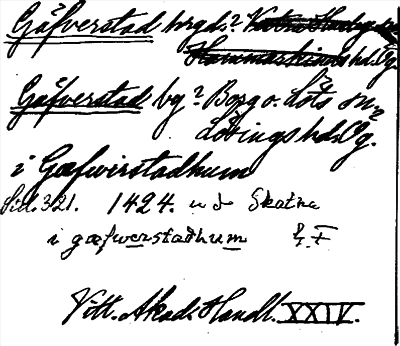 Gåfverstad borgd.?
Hammarkinds hd. Ög.
Gåfverstad by? Borg o. Löts sn?
Lösings hd. Ög.
i Gæfwirstadhum
Sid. 321. 1424. u d Skatna
i gæfwerstadhum
Vitt. Akad. Handl. XXIV.